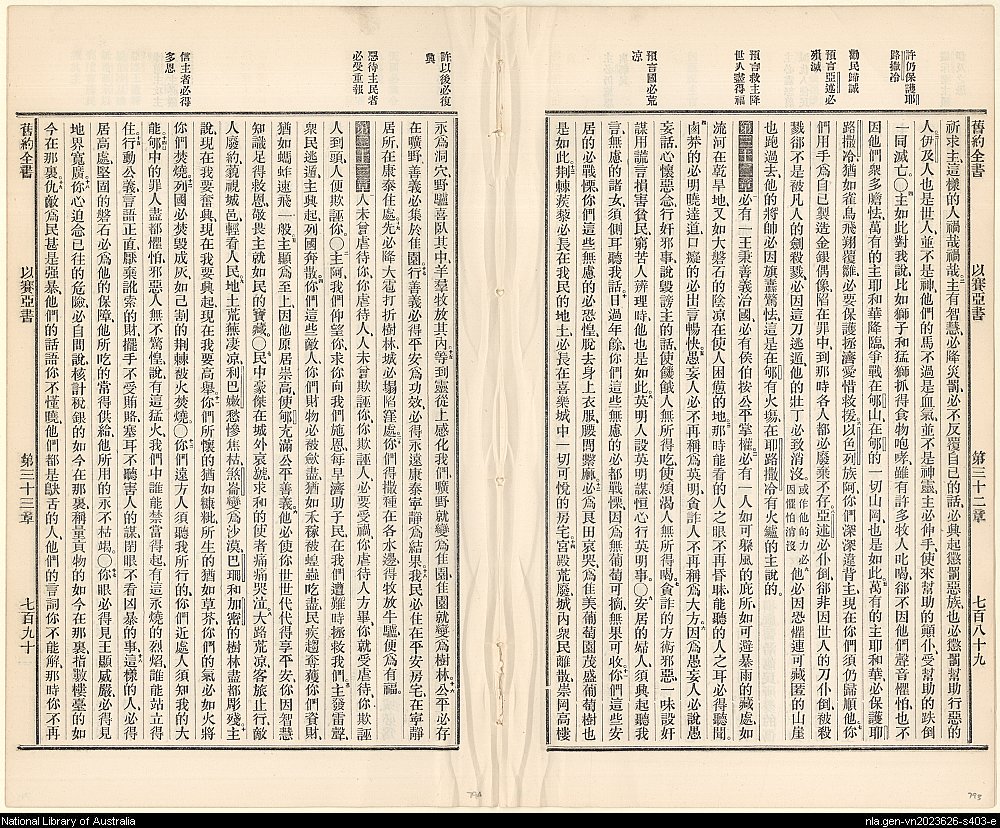 舊約全書
以賽亞書
第三十二章
七百八十九
許仍保護耶
路撒冷
勸民歸誠
預言亞述必
殞滅
預言救主降
世人盡得福
預言國必荒
凉
祈求主、這樣的人禍哉禍哉、主有智慧、必降災罰、必不反覆自己的話、必興起懲罰惡族、也必懲罰幫助行惡的
人、伊及人也是世人、並不是神、他們的馬不過是血氣、並不是神靈、主必伸手、使來幫助的顚仆、受幫助的跌倒、
一同滅亡。○主如此對我說、比如獅子和猛獅抓得食物咆哮、雖有許多牧人叱喝、卻不因他們聲音懼怕、也不
因他們衆多膽怯、萬有的主耶和華降臨爭戰在郇山、在郇的一切山岡、也是如此、萬有的主耶和華、必保護耶
路撒冷、猶如雀鳥飛翔覆雛、必要保護拯濟、愛惜救援、以色列族阿、你們深深違背主、現在你們須仍歸順他、你
們用手爲自己製造金銀偶像、陷在罪中、到那時各人都必廢棄不存、亞述必仆倒、卻非因世人的刀仆倒、被殺
戮、卻不是被凡人的劍殺戮、必因這刀逃遁、他的壯丁必致消沒、或作他的力必因懼怕消沒他必因恐懼連可藏匿的山崖
也跑過去、他的將帥必因旗纛驚怯、這是在郇有火塲、在耶路撒冷有火爐的主說的。
第三十二章必有一王秉善義治國、必有侯伯按公平掌權、必有一人如可躱風的庇所、如可避暴雨的藏處、如
流河在乾旱地、又如大磐石的陰凉、在使人困憊的地、那時能看的人之眼不再昏昧、能聽的人之耳必得聽聞、
鹵莽的必明曉達道、口癡的必出言暢快、愚妄人必不再稱爲英明、貪詐人不再稱爲大方、因爲愚妄人必說愚
妄話、心懷惡念、行奸邪事、說毀謗主的話、使饑餓人無所得吃、使煩渴人無所得喝、貪詐的方術邪惡、一味設奸
謀、用謊言損害貧民、窮苦人辨理時他也是如此、英明人設英明謀、恒心行英明事。○安居的婦人、須興起聽我
言、無慮的諸女、須側耳聽我話、日過年餘、你們這些無慮的必都戰慄、因爲無葡萄可摘、無果可收、你們這些安
居的必戰慄、你們這些無慮的必恐惶、脫去身上衣服、腰間繫麻、必爲良田哀哭、爲佳美葡萄園茂盛葡萄樹、也
是如此、荊棘蒺藜必長在我民的地土、必長在喜樂城中一切可悅的房宅、宮殿荒廢、城內衆民離散、崇岡高樓
許以後必復
興
惡待主民者
必受重報
信主者必得
多恩
永爲洞穴、野驢喜臥其中、羊羣牧放其內、等到靈從上感化我們、曠野就變爲佳園、佳園就變爲樹林、公平必存
在曠野、善義必集於佳園、行善義必得平安爲功效、必得永遠康泰寧謐爲結果、我民必住在平安房宅、在寧靜
居所、在康泰住處、先必降大雹打折樹林、城必塌陷窪處、你們得撒種在各水邊、得使牧放牛驢、便爲有福。
第三十三章人未曾虐待你、你虐待人、人未曾欺誣你、你欺誣人、必要受禍、你虐待人方畢、你就受虐待、你欺誣
人到頭、人便欺誣你。○主阿、我們仰望你、求你向我們施恩、每早濟助子民、在我們遭難時拯救我們、主發雷聲、
衆民逃遁、主興起、列國奔散、你們這些敵人、你們財物必被歛盡、猶如禾稼被蝗蟲吃盡、民疾趨奪獲你們資財、
猶如螞蚱速飛一般、主顯爲至上、因他原居崇高、使郇充滿公平善義、他必使你世世代代得享平安、你因智慧
知識足得救恩、敬畏主就如民的寶藏。○民中豪傑在城外哀號、求和的使者痛痛哭泣、大路荒凉、客旅止行、敵
人廢約、藐視城邑、輕看人民、地土荒蕪凄凉、利巴嫩愁慘焦枯、煞崙變爲沙漠、巴珊和加密的樹林盡都彫殘、主
說、現在我要奮興、現在我要興起、現在我要高舉、你們所懷的猶如糠粃、所生的猶如草芥、你們的氣必如火、將
你們焚燒、列國必焚毀成灰、如已割的荊棘被火焚燒。○你們遠方人須聽我所行的、你們近處人須知我的大
能、郇中的罪人盡都懼怕、邪惡人無不驚惶、說有這猛火、我們中誰能禁當得起、有這永燒的烈焰、誰能站立得
住、行動公義、言語正直、厭棄訛索的財、擺手不受賄賂、塞耳不聽害人的謀、閉眼不看凶暴的事、這樣的人必得
居高處、堅固的磐石必爲他的保障、他所吃的常得供給、他所用的永不枯竭。○你眼必得見王顯威嚴、必得見
地界寬廣、你心迫念已往的危險、必自問說、核計稅銀的如今在那裏、稱量貢物的如今在那裏、指數樓臺的如
今在那裏、仇敵爲民甚是強暴、他們的話語你不懂曉、他們都是鴃舌的人、他們的言詞你不能解、那時你不再
舊約全書
以賽亞書
第三十三章
七百九十
794
793
National Library of Australia
nla.gen-vn2023626-s403-e